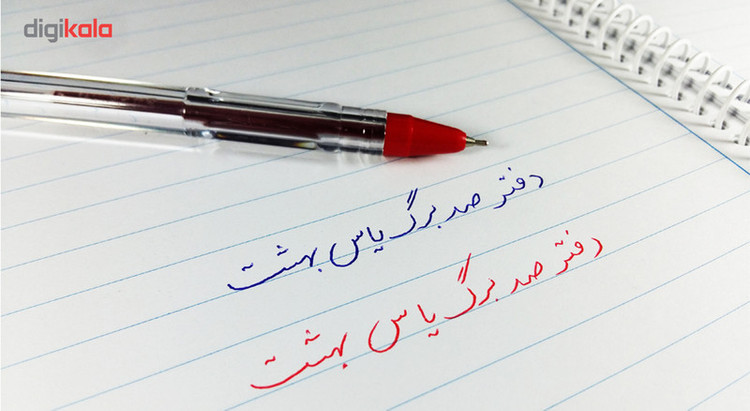 digikala
دفتر صد برگ یاس بهشت
دفتر صد برگ یاس بهشت